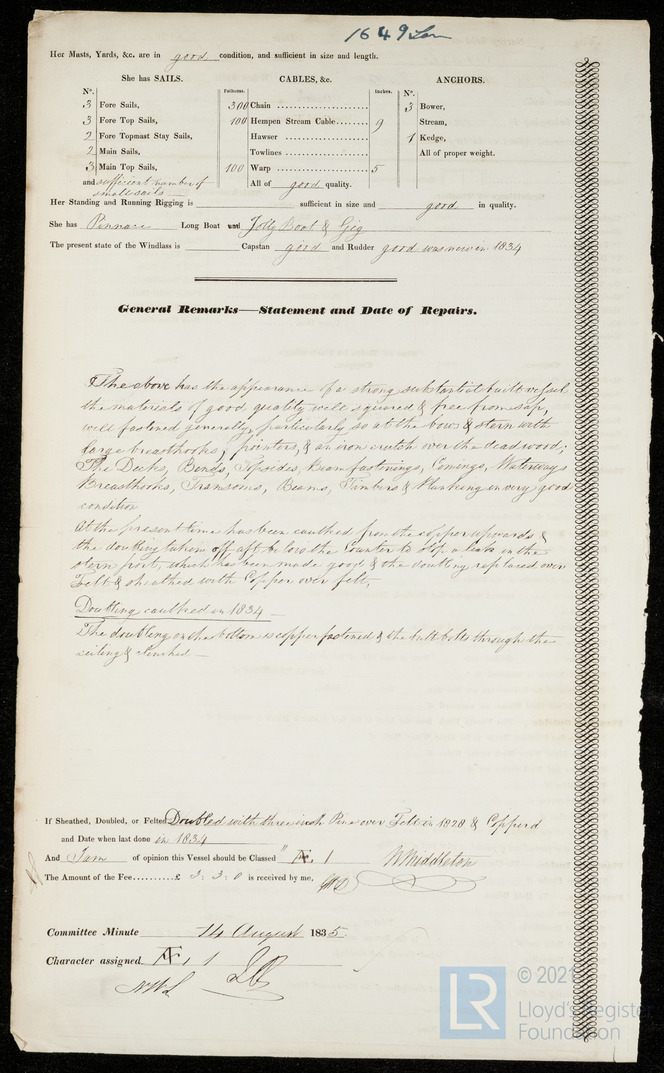 1649 Lon
Her Masts, Yards, &c. are in good condition, and sufficient in size and length.
She has SAILS. CABLES, &c. ANCHORS.
Nº. Fathoms. Inches. Nº.
3 Fore Sails, 300 Chain .................. 3 Bower,
3 Fore Top Sails, 100 Hempen Stream Cable........ 9 Stream,
2 Fore Topmast Stay Sails, Hawser .................. 1 Kedge,
2 Main Sails, Towlines .................. All of proper weight.
3 Main Top Sails, 100 Warp .................. 5
and sufficient number of All of good quality.
small sails
Her Standing and Running Rigging is sufficient in size and good in quality.
She has Pinnace Long Boat and Jolly Boat & Gig
The present state of the Windlass is Capstan good and Rudder good was new in 1834
General Remarks—Statement and Date of Repairs.
The above has the appearance of a strong substantial built vessel
the materials of good quality well squared & free from sap,
well fastened generally, particularly so at the bows & stern with
large breasthooks, pointers, & an iron crutch over the deadwood;
The Decks, Bends, Topsides, Beam fastenings, Comings, Waterways
Breasthooks, Transoms, Beams, Timbers & Plunking in very good
condition
At the present time has been caulked from the copper upwards &
the doubling taken off aft below the Counter to stop a leak in the
stern port, which has been made good & the doubling replaced over
Felt & sheathed with Copper over felt,
Doubling caulked in 1834
The doubling on the bottom is copper fastened & the butt bolts through the
ceiling & clenched
If Sheathed, Doubled, or Felted Doubled with three inch Pine over Felt in 1828 & Copperd
and Date when last done in 1834
And I am of opinion this Vessel should be Classed " Æ 1 N Middleton
The Amount of the Fee..........£ 3: 3: 0 is received by me,
Committee Minute 14 August 1835
Character assigned Æ 1
© 2021
LR
Lloyd's Register
Foundation